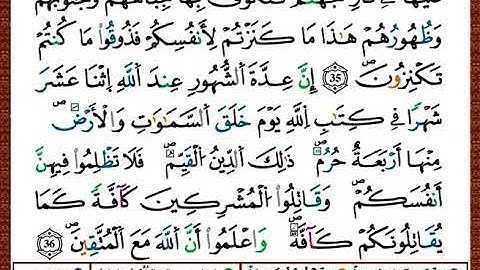 وَظُهُورُهُمْ هَٰذَا مَا كَنَزْتُمْ لِأَنفُسِكُمْ فَذُوقُوا۟ مَا كُنتُمْ
تَكْنِزُونَ ۝٣٥ إِنَّ عِدَّةَ ٱلشُّهُورِ عِندَ ٱللَّهِ ٱثْنَا عَشَرَ
شَهْرًا فِي كِتَٰبِ ٱللَّهِ يَوْمَ خَلَقَ ٱلسَّمَٰوَٰتِ وَٱلْأَرْضَ
مِنْهَا أَرْبَعَةٌ حُرُمٌ ذَٰلِكَ ٱلدِّينُ ٱلْقَيِّمُ فَلَا تَظْلِمُوا۟ فِيهِنَّ
أَنفُسَكُمْ وَقَٰتِلُوا۟ ٱلْمُشْرِكِينَ كَآفَّةً كَمَا
يُقَٰتِلُونَكُمْ كَآفَّةً وَٱعْلَمُوا۟ أَنَّ ٱللَّهَ مَعَ ٱلْمُتَّقِينَ ۝٣٦